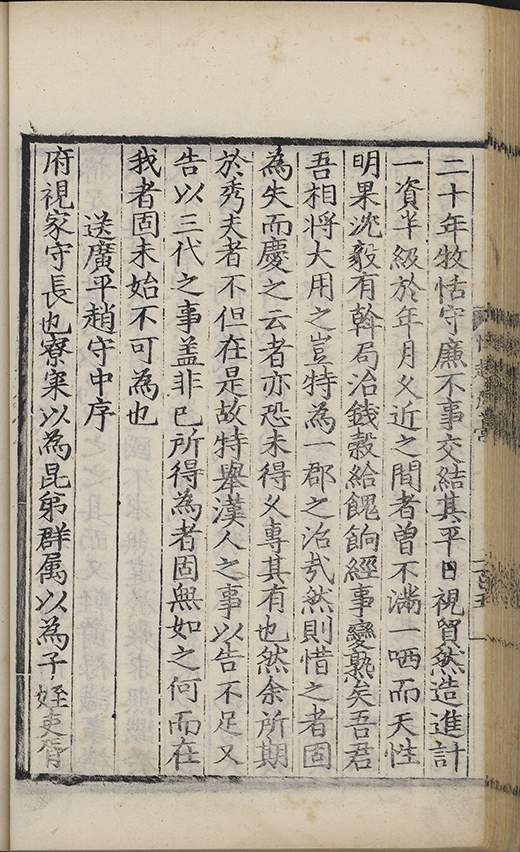 二十年牧恬守廉不事交結其平日視貿然造進計
一資半級於年月久近之間者曾不滿一哂而天性
明果沈毅有斡局治錢穀給餽餉經事變熟矣吾君
吾相將大用之豈特為一郡之治㦲然則惜之者固
為失而慶之云者亦恐未得乂專其有也然余所期
於秀夫者不但在是故特舉漢人之事以告不足又
告以三代之事盖非已所得為者固無如之何而在
我者固未始不可為也
送廣平趙守中序
府視家守長也寮寀以為昆弟群属以為子姪吏胥